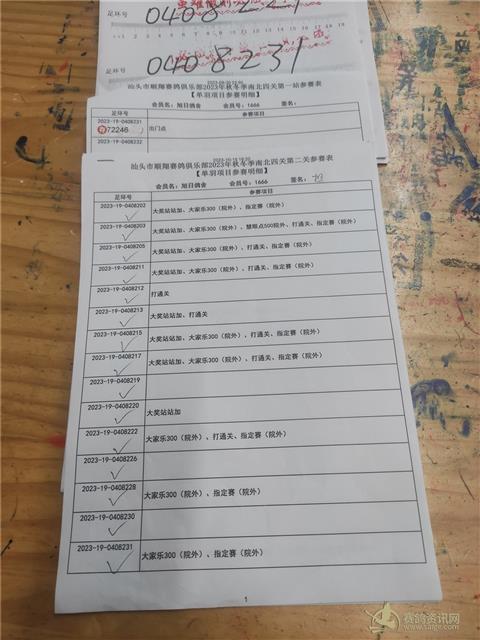 足环号
0408221
足环号
0408231
汕头市顺翔赛鸽俱乐部2023年秋冬季南北四关第一站参赛表
【单羽项目参赛明细】
会员名：旭日鸽舍 会员号：1666 签名：
足环号 参赛项目
2023-19-0408231
72246 出门点
2023-19-0408232
汕头市顺翔赛鸽俱乐部2023年秋冬季南北四关第二关参赛表
【单羽项目参赛明细】
会员名：旭日鸽舍 会员号：1666 签名：
足环号 参赛项目
2023-19-0408202 大奖站站加、大家乐300（院外）、指定赛（院外）
2023-19-0408203 大奖站站加、大家乐300（院外）、慧眼点500院外、打通关、指定赛（院外）
2023-19-0408205 大奖站站加、大家乐300（院外）、打通关、指定赛（院外）
2023-19-0408211 大奖站站加、大家乐300（院外）、打通关、指定赛（院外）
2023-19-0408212 打通关
2023-19-0408213 大奖站站加、打通关
2023-19-0408215 大奖站站加、大家乐300（院外）、打通关、指定赛（院外）
2023-19-0408217 大奖站站加、大家乐300（院外）、打通关、指定赛（院外）
2023-19-0408219
2023-19-0408220 大奖站站加
2023-19-0408222 大家乐300（院外）、打通关、指定赛（院外）
2023-19-0408226
2023-19-0408228 大家乐300（院外）、指定赛（院外）
2023-19-0408230
2023-19-0408231 大家乐300（院外）、指定赛（院外）
1
赛鸽资讯网
www.saige.com